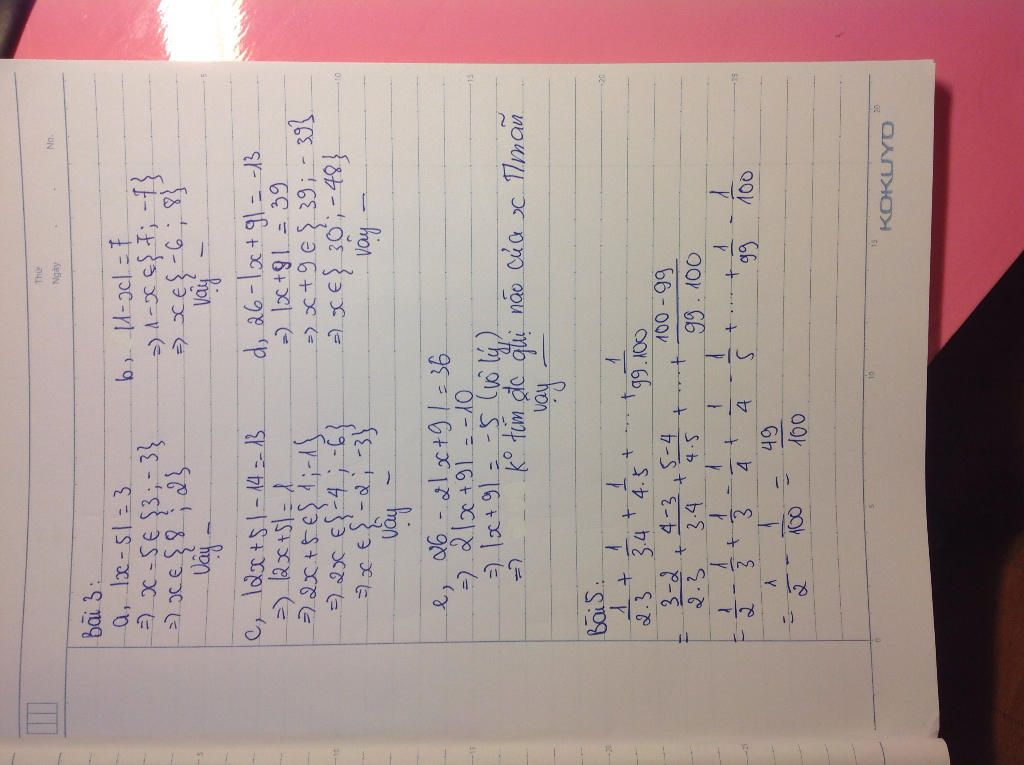 Thứ
Ngày
No.
Bài 3:
a, |x - 5| = 3
=) x - 5 ∈ {3 ; -3}
=) x ∈ {8 ; 2}
Vậy _
b, |1 - x| = 7
=) 1 - x ∈ {7 ; -7}
=) x ∈ {-6 ; 8}
Vậy _
c, |2x + 5| - 14 = -13
=) |2x + 5| = 1
=) 2x + 5 ∈ {1 ; -1}
=) 2x ∈ {-4 ; -6}
=) x ∈ {-2 ; -3}
Vậy _
d, 26 - |x + 9| = -13
=) |x + 9| = 39
=) x + 9 ∈ {39 ; -39}
=) x ∈ {30 ; -48}
Vậy _
e, 26 - 2|x + 9| = 36
=) 2|x + 9| = -10
=) |x + 9| = -5 (vô lý)
=) k° tìm đc gtrị nào của x Tmãn
Vậy _
Bài 5:
1/2.3 + 1/3.4 + 1/4.5 + .... + 1/99.100
= 3-2/2.3 + 4-3/3.4 + 5-4/4.5 + ... + 100-99/99.100
= 1/2 - 1/3 + 1/3 - 1/4 + 1/4 - 1/5 + .... + 1/99 - 1/100
= 1/2 - 1/100 = 49/100
KOKUYO
5
10
15
20
25
0
5
10
15
20
5
10
15
20
25